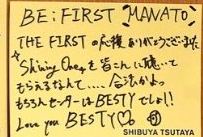 BE:FIRST MANATO
THE FIRST の応援ありがとうございました
"Shining One"を皆さんに聴いて
もらえるなんて.... 合法かよっ
もちろんセンターはBESTYでしょ!!
Love you BESTY♡
SHIBUYA TSUTAYA